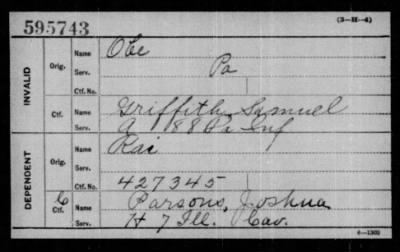 595743 (3-H-4)
INVALID
Orig.
Name Obe
Serv. Pa
Ctf. No.
Ctf.
Name Griffith, Samuel
Serv. A 188 Pa Inf
DEPENDENT
Orig.
Name Rai
Serv.
Ctf. No. 427345
C Ctf.
Name Parsons, Joshua
Serv. H 7 Ill. Cav.
6-1303